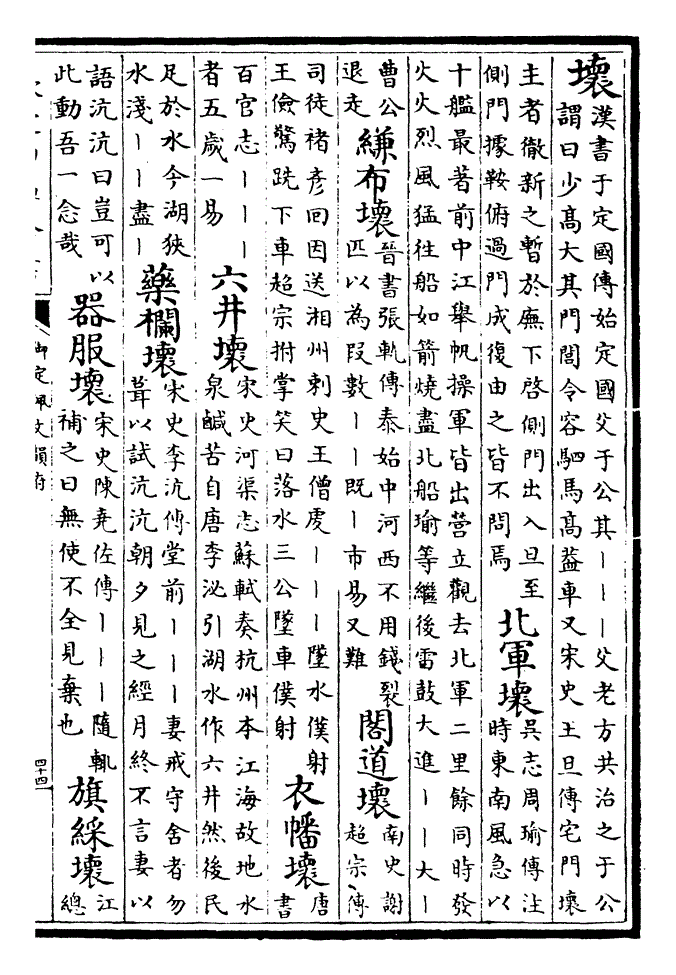 壞
漢書于定國傳始定國父于公其丨丨丨父老方共治之于公
謂曰少髙大其門閭令容駟馬髙葢車又宋史王旦傳宅門壞
主者徹新之暫於廡下啓側門出入旦至
側門據鞍俯過門成復由之皆不問焉
北軍壞
吳志周瑜傳注
時東南風急以
十艦最著前中江舉帆操軍皆出營立觀去北軍二里餘同時發
火火烈風猛徃船如箭燒盡北船瑜等繼後雷鼓大進丨丨大丨
曹公
退走
縑布壞
晉書張軌傳泰始中河西不用錢裂
匹以為叚數丨丨既丨市易又難
閣道壞
南史謝
超宗傳
司徒禇彦回因送湘州刺史王僧䖍丨丨丨墜水僕射
王儉驚跣下車超宗拊掌笑曰落水三公墜車僕射
衣幡壞
唐
書
百官志丨丨丨
者五歲一易
六井壞
宋史河渠志蘇軾奏杭州本江海故地水
泉鹹苦自唐李泌引湖水作六井然後民
足於水今湖狹
水淺丨丨盡丨
藥欄壞
宋史李沆傳堂前丨丨丨妻戒守舍者勿
葺以試沆沆朝夕見之經月終不言妻以
語沆沆曰豈可以
此動吾一念哉
器服壞
宋史陳堯佐傳丨丨丨隨輒
補之曰無使不全見棄也
旗綵壞
江
總
御定佩文韻府
四十四